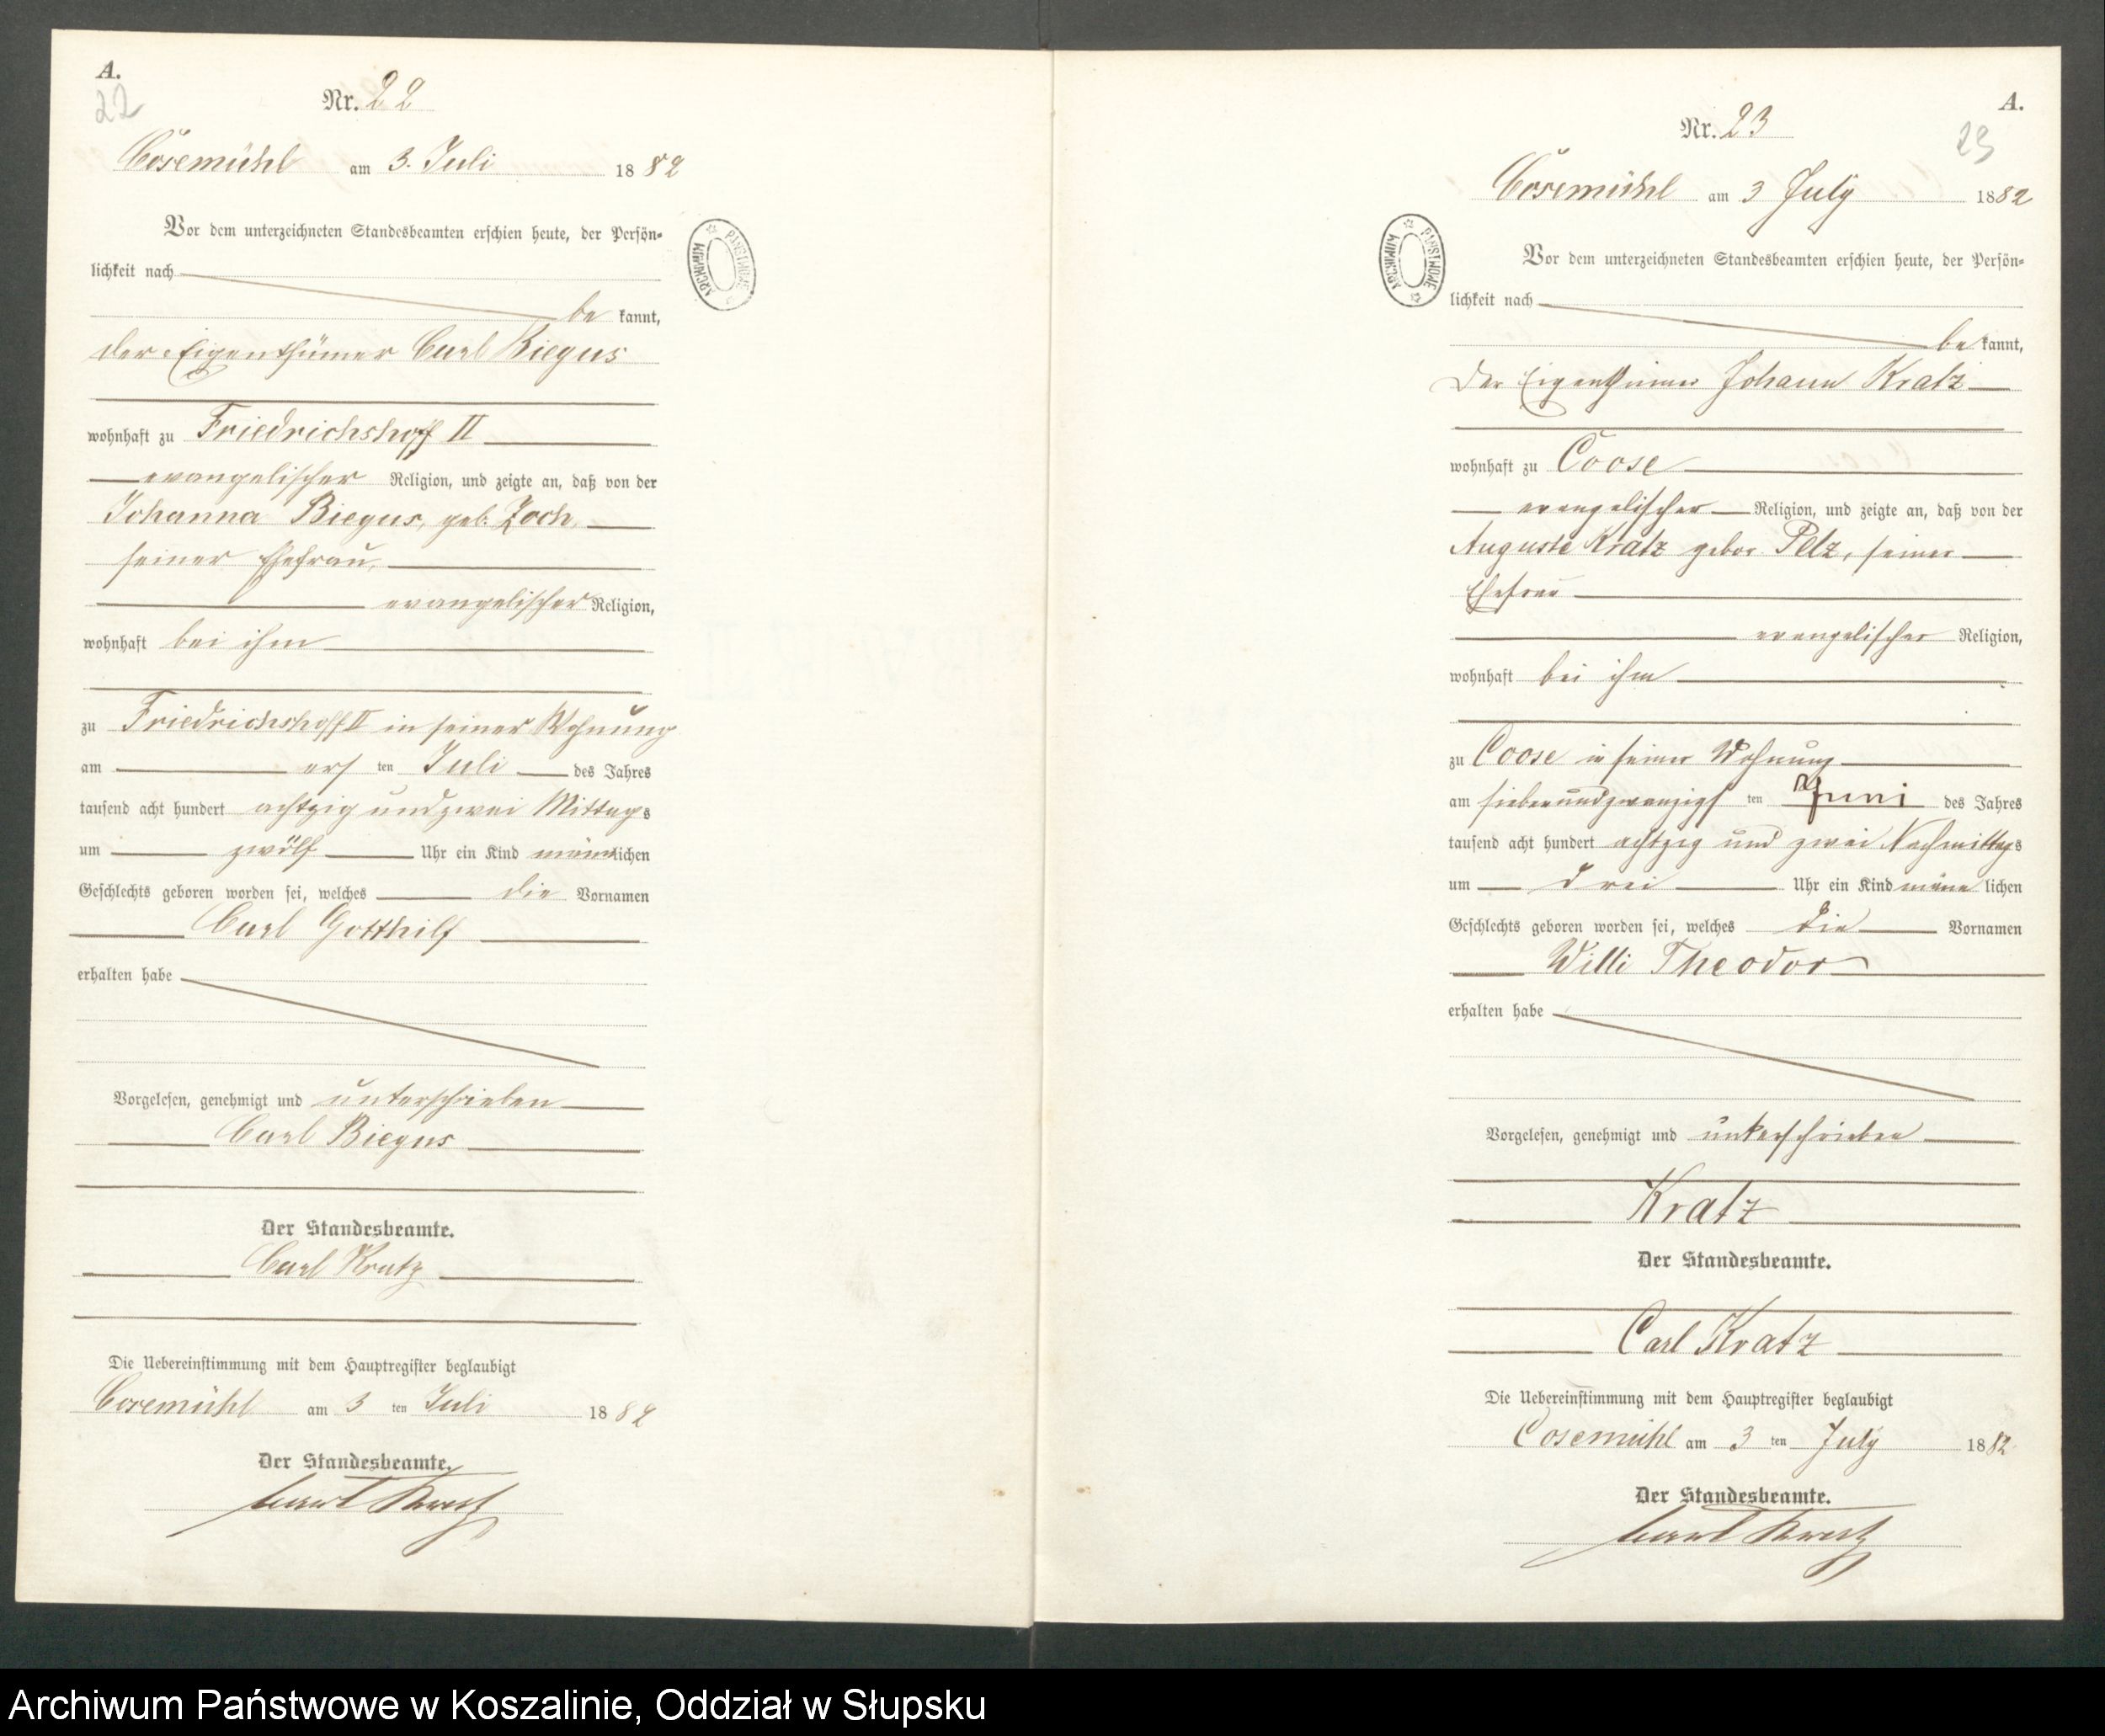 A.
22
Nr. 22
Cosemühl am 3. Juli 1882
Vor dem unterzeichneten Standesbeamten erschien heute, der Persön-
lichkeit nach
be kannt,
der Eigenthümer Carl Biegus
wohnhaft zu Friedrichshoff II
evangelischer Religion, und zeigte an, daß von der
Johanna Biegus, geb. Zoch,
seiner Ehefrau,
evangelischer Religion,
wohnhaft bei ihm
zu Friedrichshoff II in seiner Wohnung
am ers ten Juli des Jahres
tausend acht hundert achtzig und zwei Mittags
um zwölf Uhr ein Kind männlichen
Geschlechts geboren worden sei, welches die Vornamen
Carl Gotthilf
erhalten habe
Vorgelesen, genehmigt und unterschrieben
Carl Biegus
Der Standesbeamte.
Carl Kratz
Die Uebereinstimmung mit dem Hauptregister beglaubigt
Cosemühl am 3 ten Juli 1882
Der Standesbeamte.
Carl Kratz
ARCHIWUM PAŃSTWOWE
A.
Nr. 23
23
Cosemühl am 3 July 1882
Vor dem unterzeichneten Standesbeamten erschien heute, der Persön-
lichkeit nach
be kannt,
Der Eigenthümer Johann Kratz
wohnhaft zu Coose
evangelischer Religion, und zeigte an, daß von der
Auguste Kratz gebor. Pelz, seiner
Ehefrau
evangelischer Religion,
wohnhaft bei ihm
zu Coose in seiner Wohnung
am siebenundzwanzigs ten Juni des Jahres
tausend acht hundert achtzig und zwei Nachmittags
um drei Uhr ein Kind männ lichen
Geschlechts geboren worden sei, welches die Vornamen
Willi Theodor
erhalten habe
Vorgelesen, genehmigt und unterschrieben
Kratz
Der Standesbeamte.
Carl Kratz
Die Uebereinstimmung mit dem Hauptregister beglaubigt
Cosemühl am 3 ten July 1882
Der Standesbeamte.
Carl Kratz
ARCHIWUM PAŃSTWOWE
Archiwum Państwowe w Koszalinie, Oddział w Słupsku